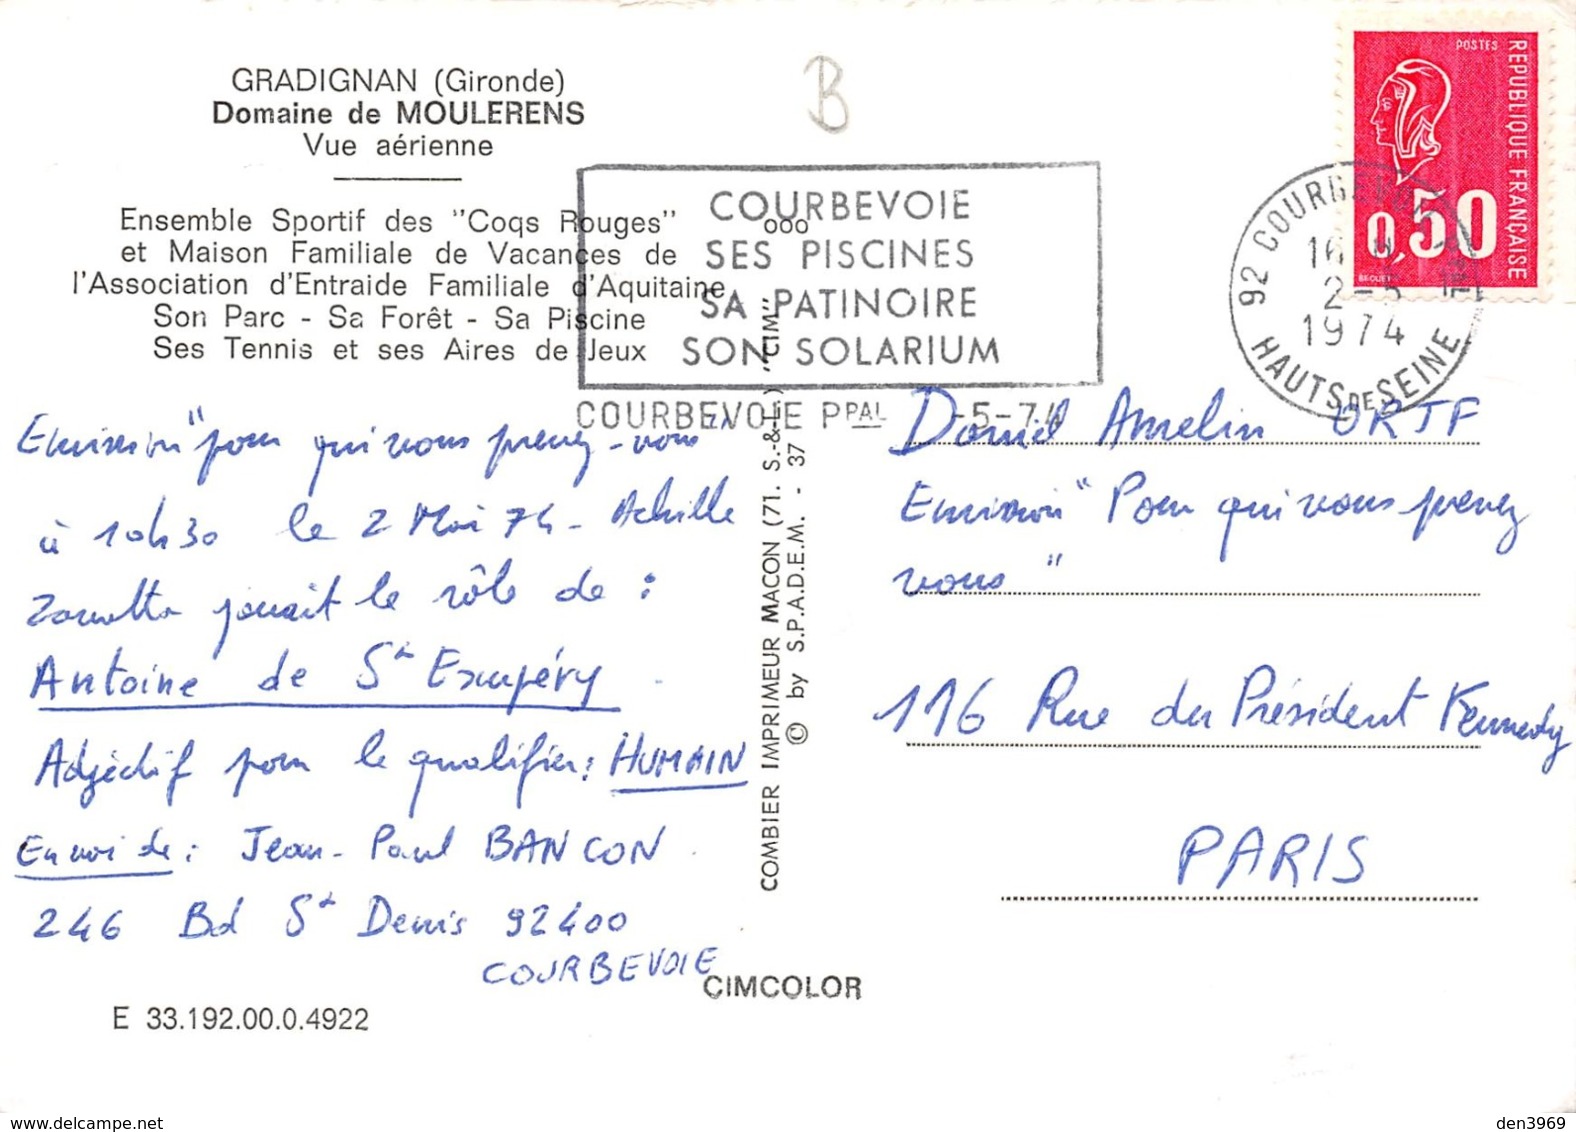 GRADIGNAN (Gironde)
Domaine de MOULERENS
Vue aérienne
Ensemble Sportif des "Coqs Rouges"
et Maison Familiale de Vacances de
l'Association d'Entraide Familiale d'Aquitaine
Son Parc - Sa Forêt - Sa Piscine
Ses Tennis et ses Aires de Jeux
B
COURBEVOIE
ooo
SES PISCINES
SA PATINOIRE
SON SOLARIUM
COURBEVOIE PPAL -5-74
92 COURBEVOIE
16 H
2-5
1974
HAUTS DE SEINE
POSTES
REPUBLIQUE FRANÇAISE
0,50
BEQUET
Emission "pour qui vous prenez-vous"
à 10h30 le 2 Mai 74 - Achille
Zavatta jouait le rôle de :
Antoine de St Exupéry
Adjectif pour le qualifier : HUMAIN
Envoi de : Jean-Paul BANCON
246 Bd St Denis 92400
COURBEVOIE
E 33.192.00.0.4922
COMBIER IMPRIMEUR MACON (71. S.-&-L.) "CIM"
© by S.P.A.D.E.M. - 37
CIMCOLOR
Daniel Amelin ORTF
Emission "Pour qui vous prenez
vous"
116 Rue du Président Kennedy
PARIS
den3969